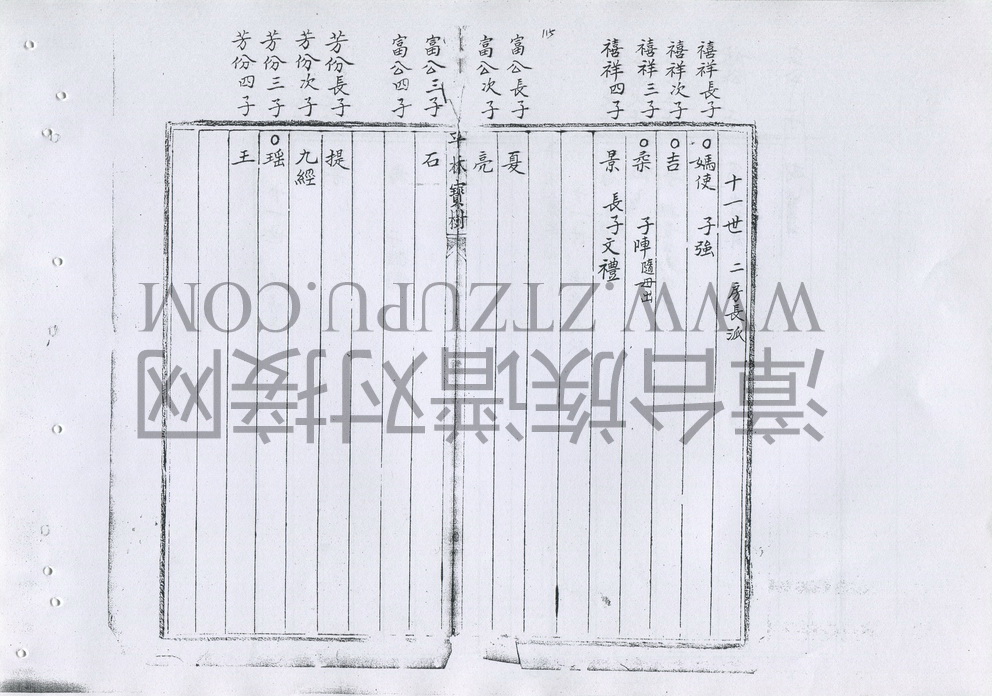 115
十一世 二房長派
禧祥長子
○媽使 子強
禧祥次子
○吉
禧祥三子
○桑 子陣隨母出
禧祥四子
景 長子文禮
富公長子
夏
富公次子
亮
平林寶樹
富公三子
石
富公四子
芳份長子
提
芳份次子
九經
芳份三子
○瑶
芳份四子
王
WWW.ZTZUPU.COM
漳台族谱对接网